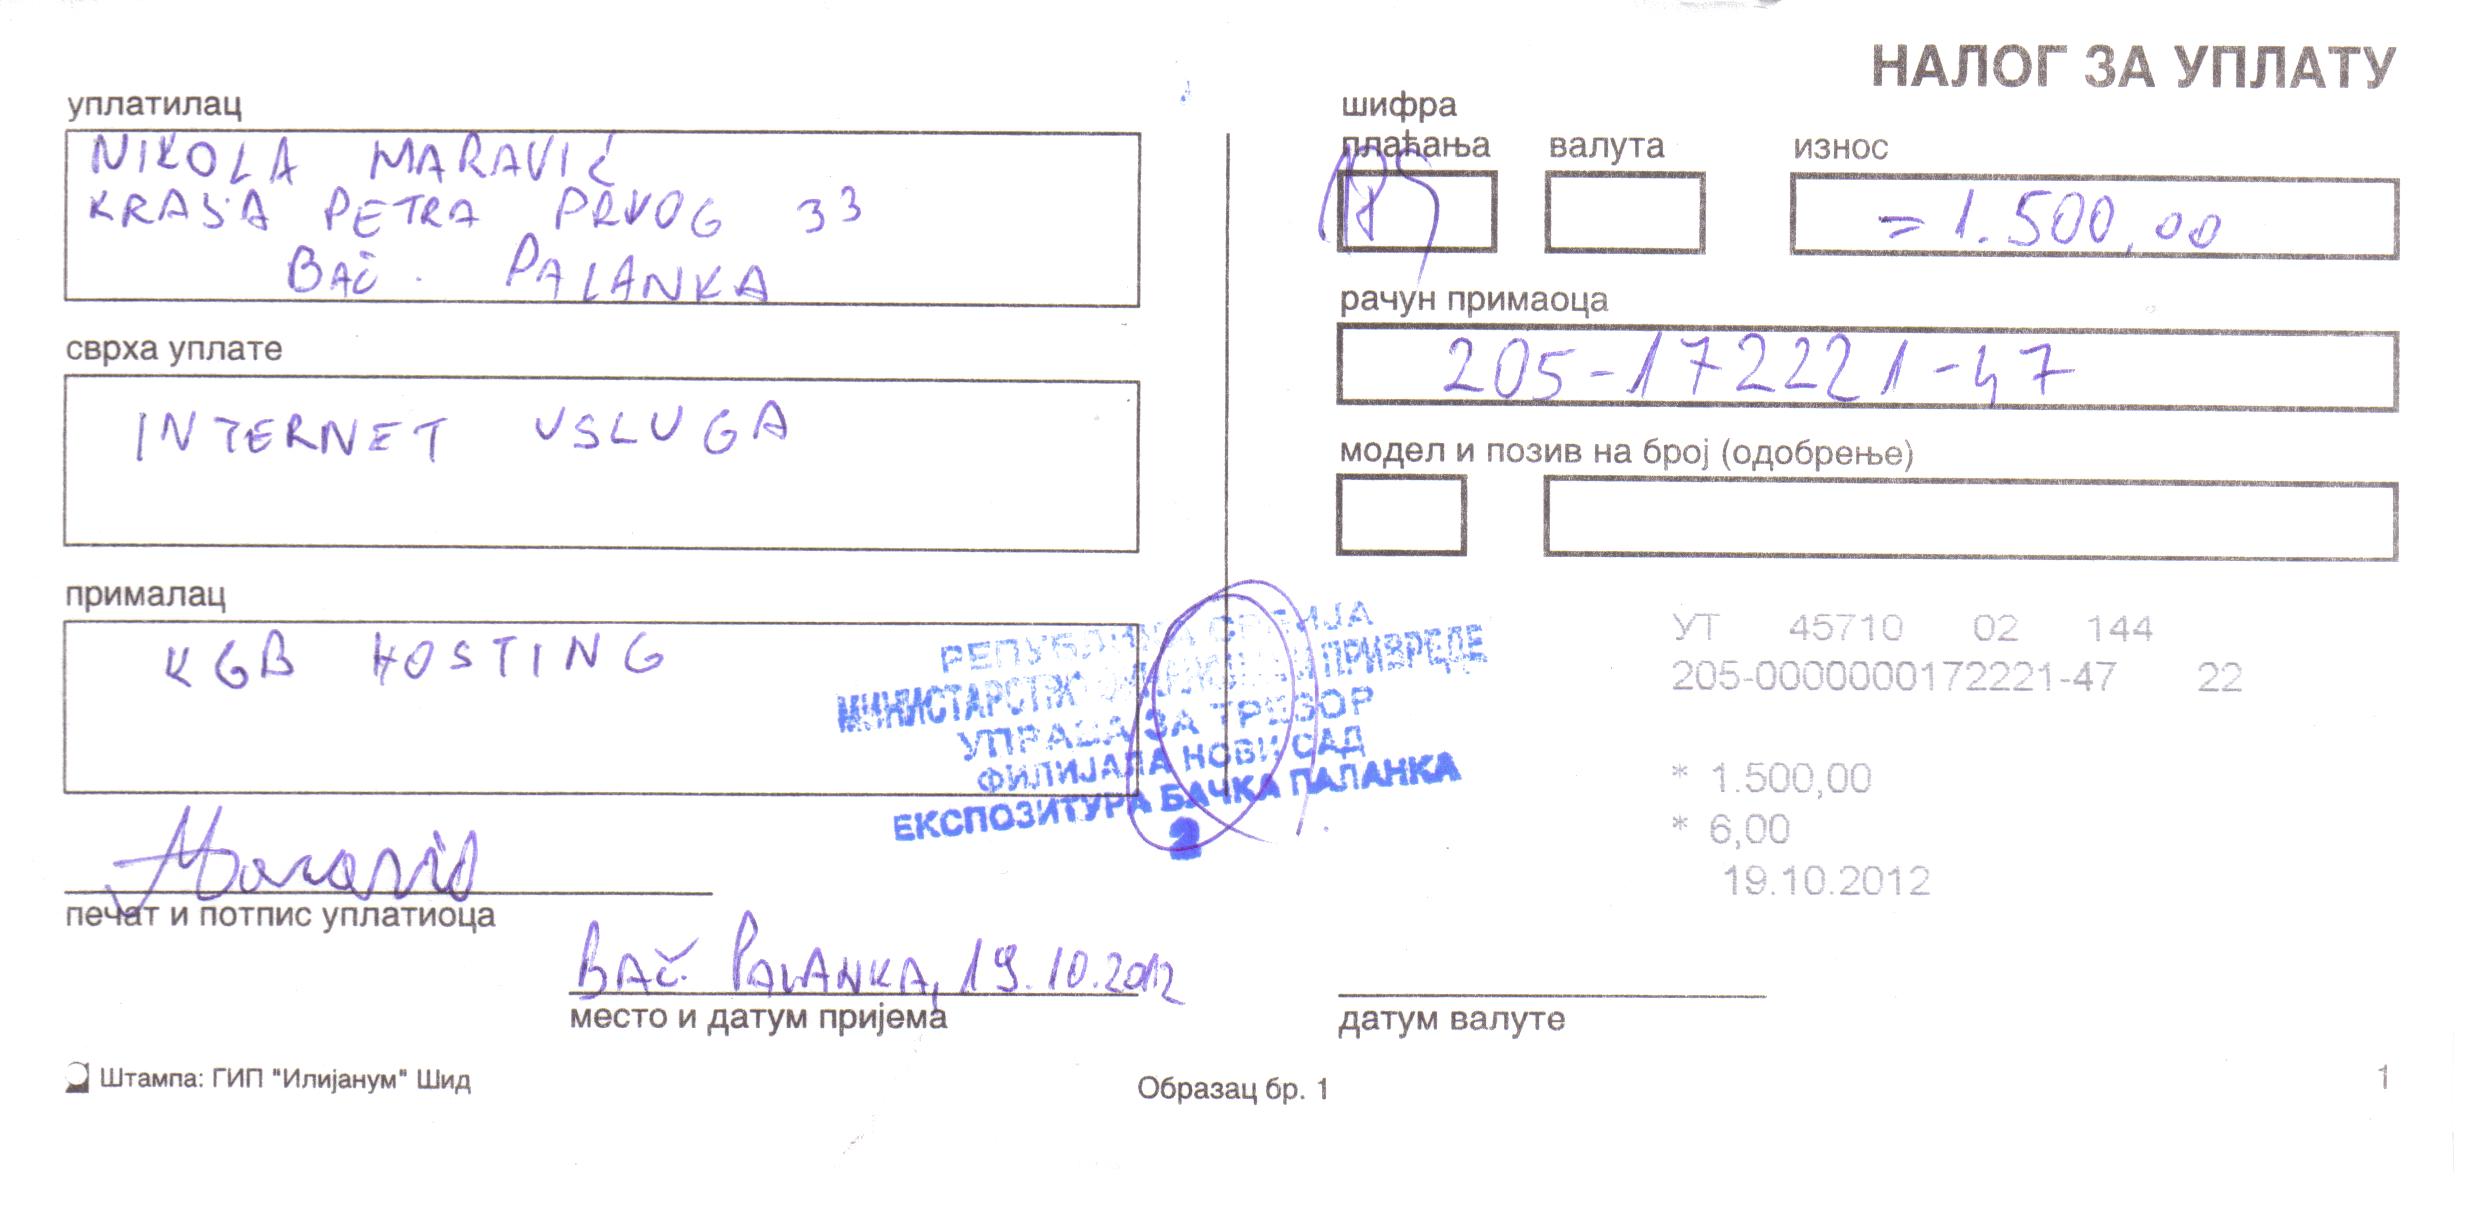 НАЛОГ ЗА УПЛАТУ
уплатилац
NIKOLA MARAVIĆ
KRAJA PETRA PRVOG 33
BAČ. PALANKA
сврха уплате
INTERNET USLUGA
прималац
KGB HOSTING
печат и потпис уплатиоца
BAČ. PALANKA, 19.10.2012
место и датум пријема
шифра
плаћања
валута
износ
= 1.500,00
рачун примаоца
205-172221-47
модел и позив на број (одобрење)
РЕПУБЛИКА СРБИЈА
МИНИСТАРСТВО ФИНАНСИЈА И ПРИВРЕДЕ
УПРАВА ЗА ТРЕЗОР
ФИЛИЈАЛА НОВИ САД
ЕКСПОЗИТУРА БАЧКА ПАЛАНКА
2
УТ 45710 02 144
205-0000000172221-47 22
* 1.500,00
* 6,00
19.10.2012
датум валуте
Штампа: ГИП "Илијанум" Шид
Образац бр. 1
1